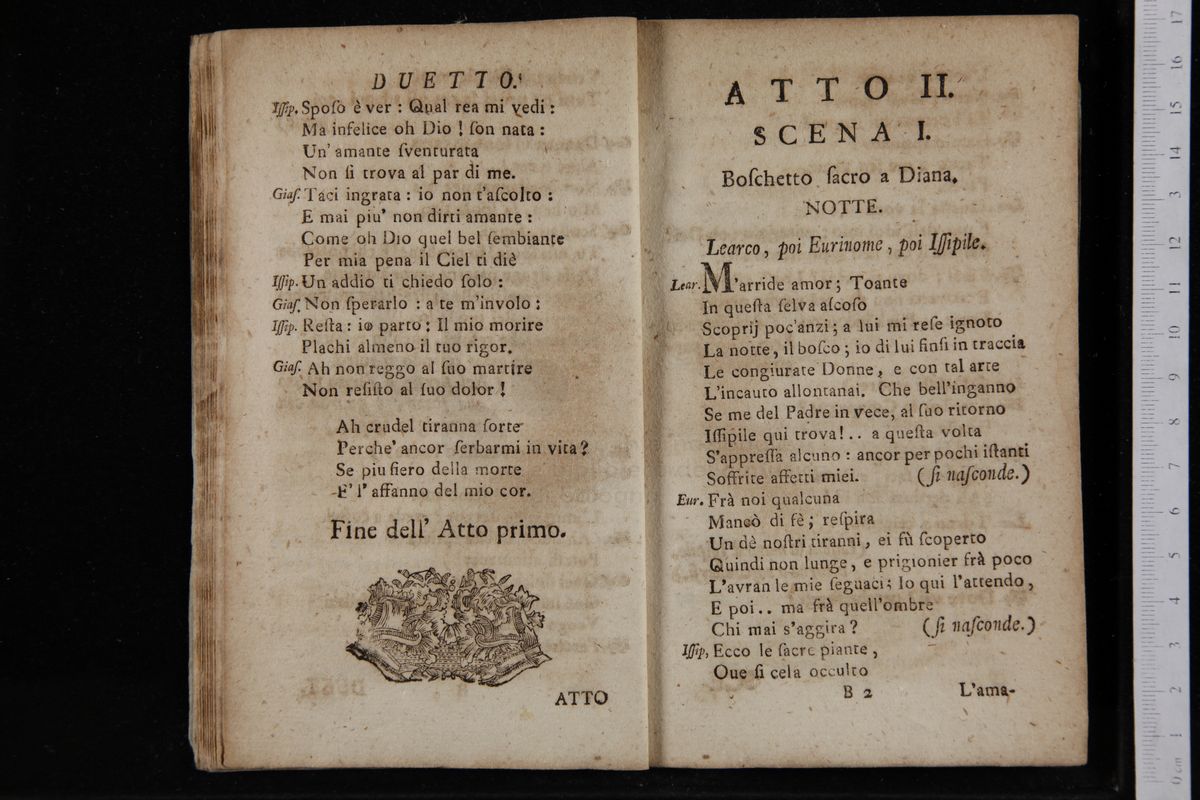 DUETTO.
Iſſip. Spoſo è ver : Qual rea mi vedi :
Ma infelice oh Dio ! ſon nata :
Un' amante ſventurata
Non ſi trova al par di me.
Giaſ. Taci ingrata : io non t'aſcolto :
E mai piu' non dirti amante :
Come oh Dio quel bel ſembiante
Per mia pena il Ciel ti diè
Iſſip. Un addio ti chiedo ſolo :
Giaſ. Non ſperarlo : a te m'involo :
Iſſip. Reſta : io parto : Il mio morire
Plachi almeno il tuo rigor.
Giaſ. Ah non reggo al ſuo martire
Non reſiſto al ſuo dolor !
Ah crudel tiranna ſorte
Perche' ancor ſerbarmi in vita ?
Se piu fiero della morte
E' l' affanno del mio cor.
Fine dell' Atto primo.
ATTO
ATTO II.
SCENA I.
Boſchetto ſacro a Diana.
NOTTE.
Learco, poi Eurinome, poi Iſſipile.
Lear. M'arride amor ; Toante
In queſta ſelva aſcoſo
Scoprij poc'anzi ; a lui mi reſe ignoto
La notte, il boſco ; io di lui finſi in traccia
Le congiurate Donne, e con tal arte
L'incauto allontanai. Che bell'inganno
Se me del Padre in vece, al ſuo ritorno
Iſſipile qui trova ! .. a queſta volta
S'appreſſa alcuno : ancor per pochi iſtanti
Soffrite affetti miei. (ſi naſconde.)
Eur. Frà noi qualcuna
Mancò di fè ; reſpira
Un dè noſtri tiranni, ei fù ſcoperto
Quindi non lunge, e prigionier frà poco
L'avran le mie ſeguaci : Io qui l'attendo,
E poi .. ma frà quell'ombre
Chi mai s'aggira ? (ſi naſconde.)
Iſſip, Ecco le ſacre piante,
Oue ſi cela occulto
B 2 L'ama-
17
16
15
14
13
12
11
10
9
8
7
6
5
4
3
2
1
0 cm